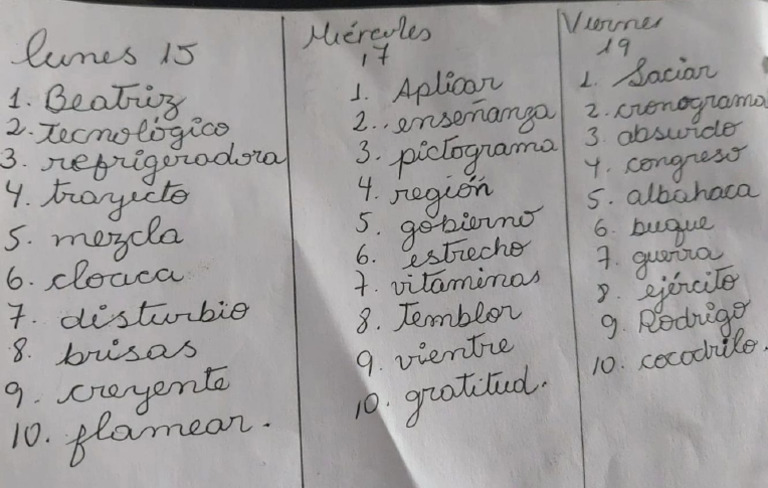 lunes 15
1. Beatriz
2. Tecnológico
3. refrigeradora
4. trayecto
5. mezcla
6. cloaca
7. disturbio
8. brisas
9. creyente
10. flamear.
Miércoles
17
1. Aplicar
2. enseñanza
3. pictograma
4. región
5. gobierno
6. estrecho
7. vitaminas
8. Temblor
9. vientre
10. gratitud.
Viernes
19
1. Saciar
2. cronograma
3. absurdo
4. congreso
5. albahaca
6. buque
7. guerra
8. ejército
9. Rodrigo
10. cocodrilo.